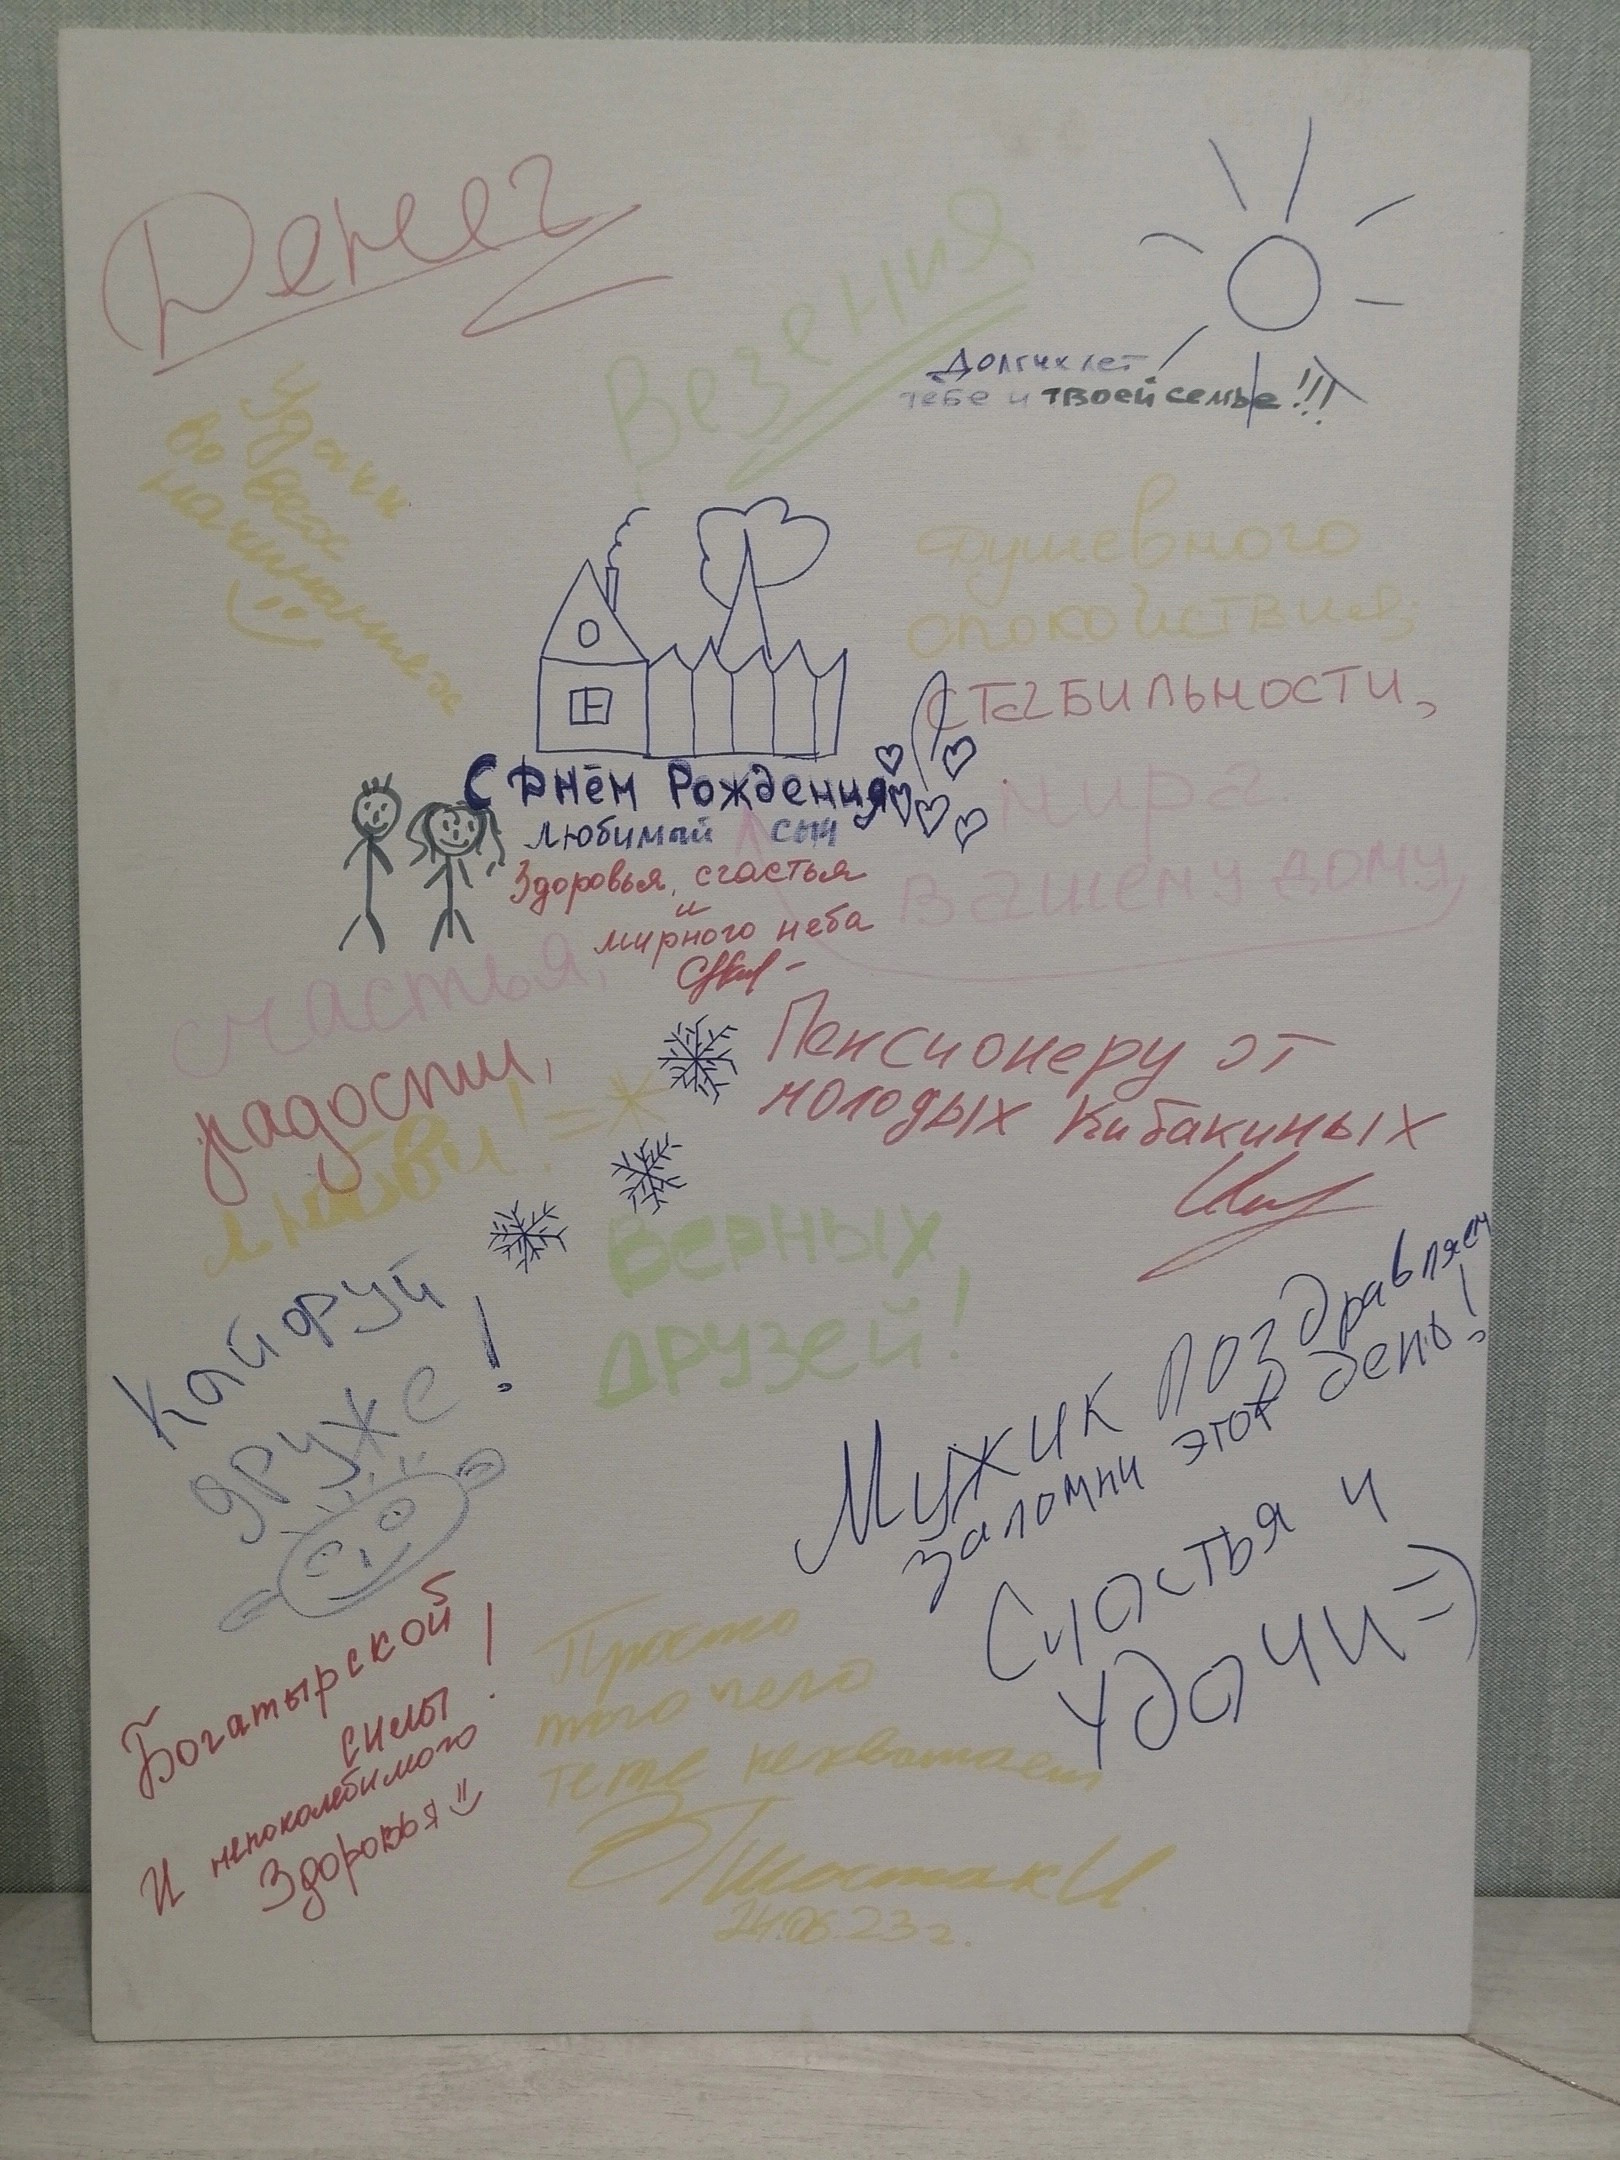 Денег
Везения
Долгих лет
тебе и твоей семье!!!
Удачи
во всех
начинаниях
Душевного
спокойствия,
стабильности,
мира
вашему дому
С Днём Рождения
любимый сын
Здоровья, счастья
и
мирного неба
счастья,
радости,
любви! =*
Пенсионеру от
молодых Кибакиных
Верных
друзей!
Кайфруй
друже!
Мужик поздравляем
запомни этот день!
Счастья и
удачи =)
Богатырской
силы!
И непоколебимого
Здоровья =)
Просто
того чего
тебе нехватает
Шостак И.
24.06.23г.